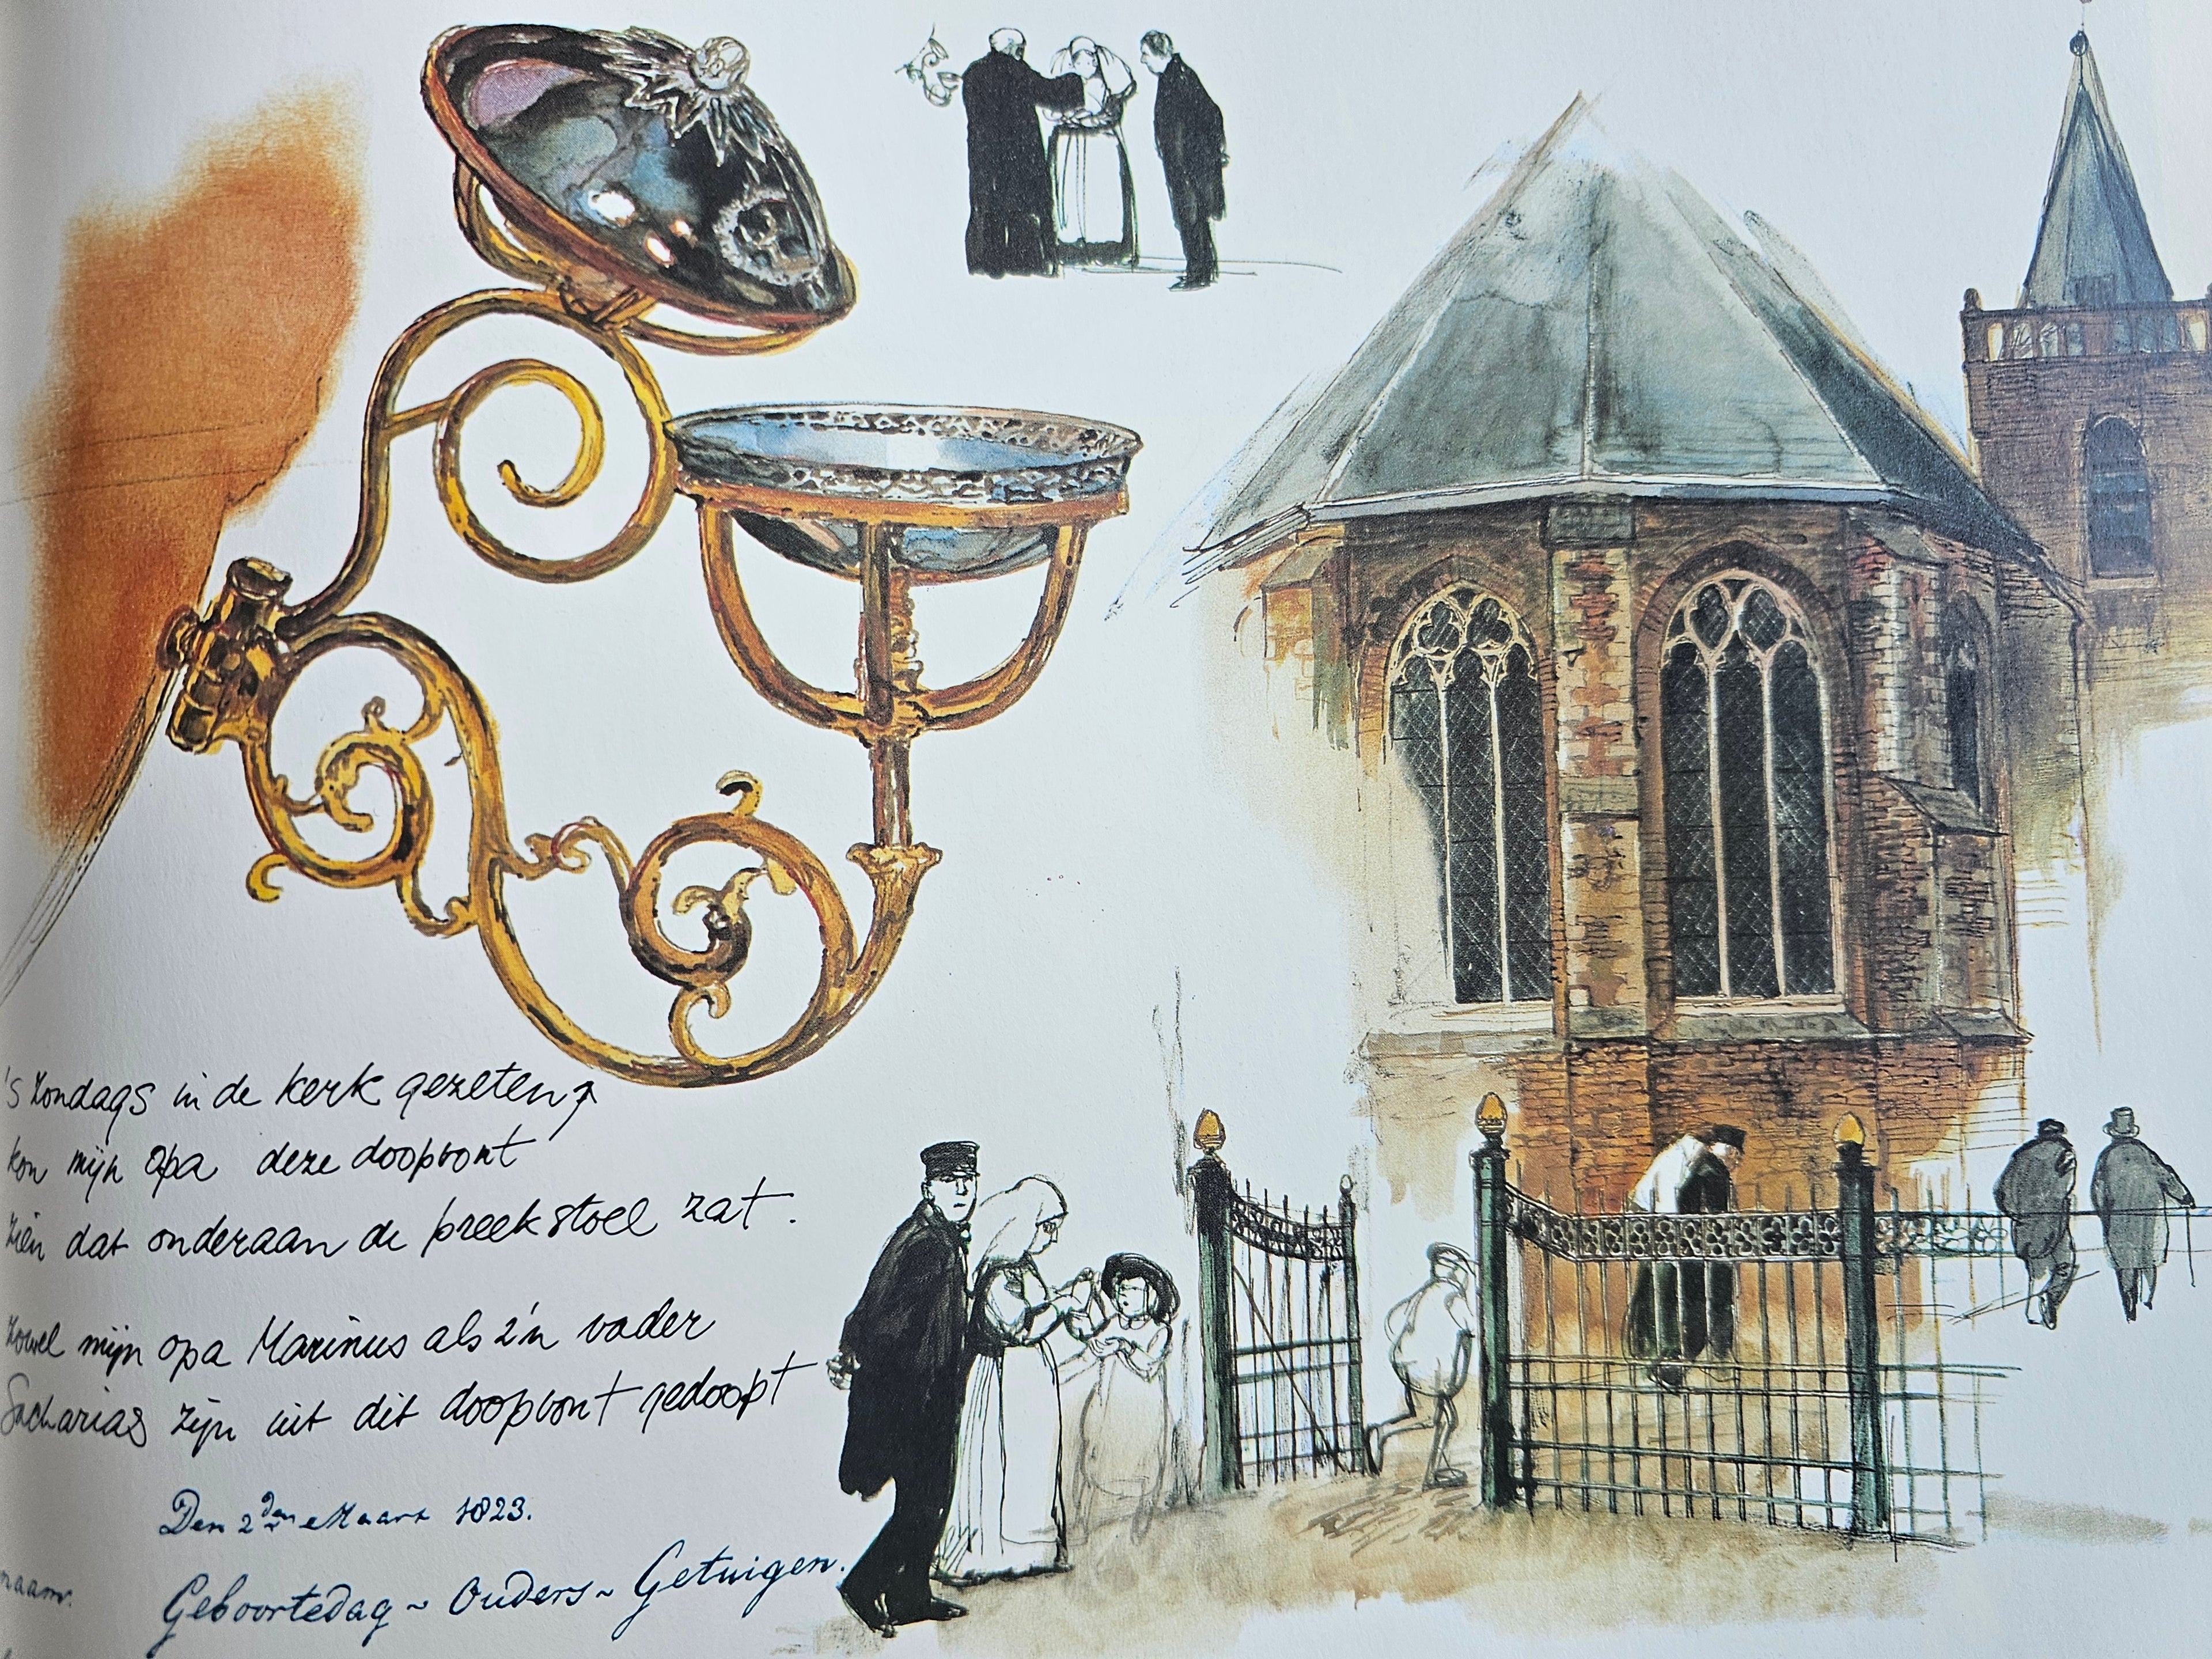 's Zondags in de kerk gezeten,
kon mijn opa deze doopvont
zien dat onderaan de preekstoel zat.
Zowel mijn opa Marinus als z'n vader
Sacharias zijn uit dit doopvont gedoopt
Den 2den Maart 1823.
naam.
Geboortedag ~ Ouders ~ Getuigen.